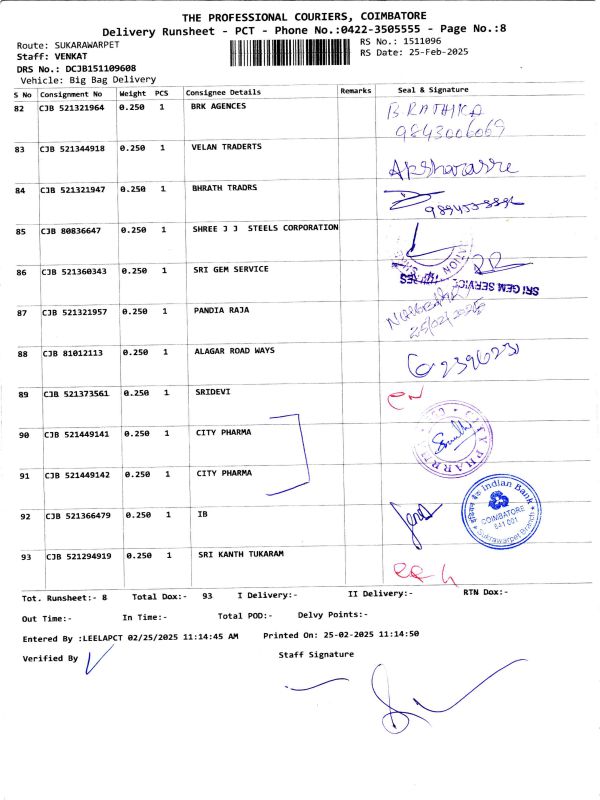 THE PROFESSIONAL COURIERS, COIMBATORE
Delivery Runsheet - PCT - Phone No.:0422-3505555 - Page No.:8
Route: SUKARAWARPET
RS No.: 1511096
Staff: VENKAT
RS Date: 25-Feb-2025
DRS No.: DCJB151109608
Vehicle: Big Bag Delivery
S No Consignment No Weight PCS Consignee Details Remarks Seal & Signature
82 CJB 521321964 0.250 1 BRK AGENCES
9843006069
83 CJB 521344918 0.250 1 VELAN TRADERTS
84 CJB 521321947 0.250 1 BHRATH TRADRS
85 CJB 80836647 0.250 1 SHREE J J STEELS CORPORATION
86 CJB 521360343 0.250 1 SRI GEM SERVICE
SRI GEM SERVICES
87 CJB 521321957 0.250 1 PANDIA RAJA
25/02/2025
88 CJB 81012113 0.250 1 ALAGAR ROAD WAYS
89 CJB 521373561 0.250 1 SRIDEVI
90 CJB 521449141 0.250 1 CITY PHARMA
CITY PHARMA
91 CJB 521449142 0.250 1 CITY PHARMA
92 CJB 521366479 0.250 1 IB
Indian Bank
COIMBATORE
641 001
Sukrawarpet Branch
93 CJB 521294919 0.250 1 SRI KANTH TUKARAM
Tot. Runsheet:- 8 Total Dox:- 93 I Delivery:- II Delivery:- RTN Dox:-
Out Time:- In Time:- Total POD:- Delvy Points:-
Entered By :LEELAPCT 02/25/2025 11:14:45 AM Printed On: 25-02-2025 11:14:50
Verified By Staff Signature